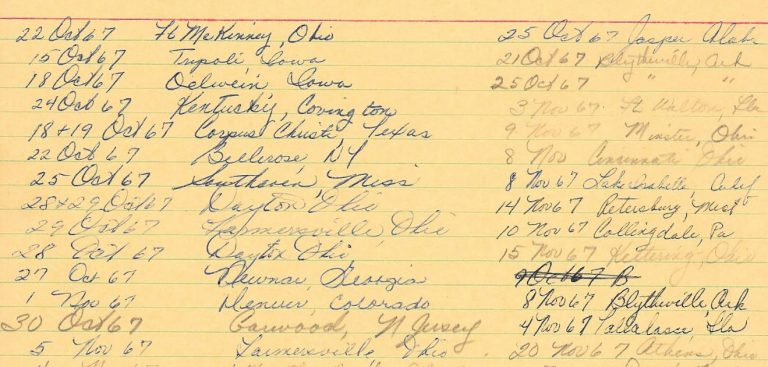 22 Oct 67 Ft McKinney, Ohio
15 Oct 67 Tripoli, Iowa
18 Oct 67 Oelwein, Iowa
24 Oct 67 Kentucky, Covington
18+19 Oct 67 Corpus Christi, Texas
22 Oct 67 Bellerose, NY
25 Oct 67 Southaven, Miss
28+29 Oct 67 Dayton, Ohio
29 Oct 67 Farmersville, Ohio
28 Oct 67 Dayton Ohio,
27 Oct 67 Newnan, Georgia
1 Nov 67 Denver, Colorado
30 Oct 67 Garwood, N Jersey
5 Nov 67 Farmersville, Ohio
25 Oct 67 Jasper Alab
21 Oct 67 Blytheville, Ark
25 Oct 67 " "
3 Nov 67 Ft Walton, Fla
9 Nov 67 Minster, Ohio
8 Nov Cincinnati Ohio
8 Nov 67 Lake Isabella, Calif
14 Nov 67 Petersburg, Mich
10 Nov 67 Collingdale, Pa
15 Nov 67 Kettering, Ohio
9 Oct 67 B
8 Nov 67 Blythville, Ark
4 Nov 67 Fla
20 Nov 67 Athens, Ohio